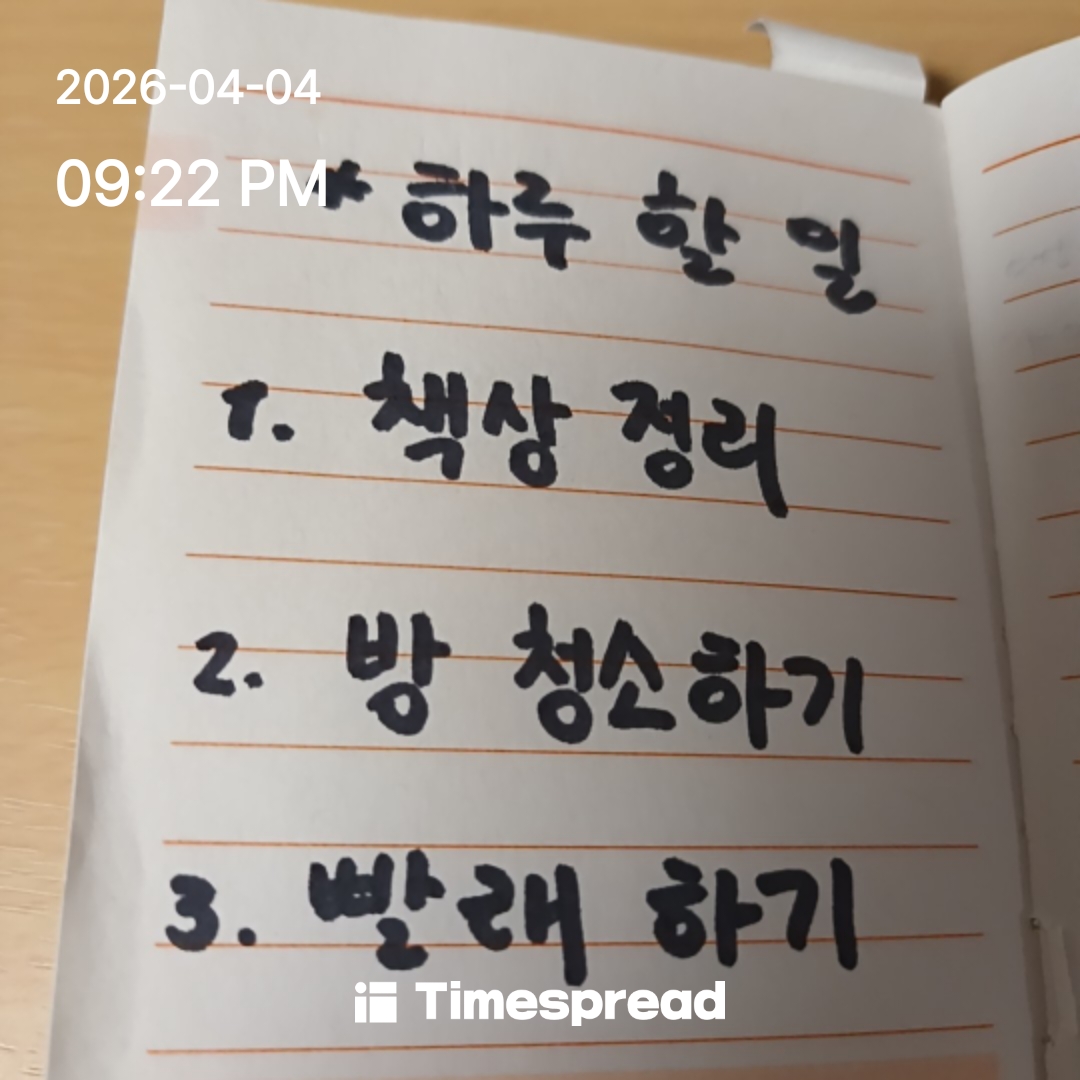 2026-04-04
09:22 PM
* 하루 할 일
1. 책상 정리
2. 방 청소하기
3. 빨래 하기
Timespread